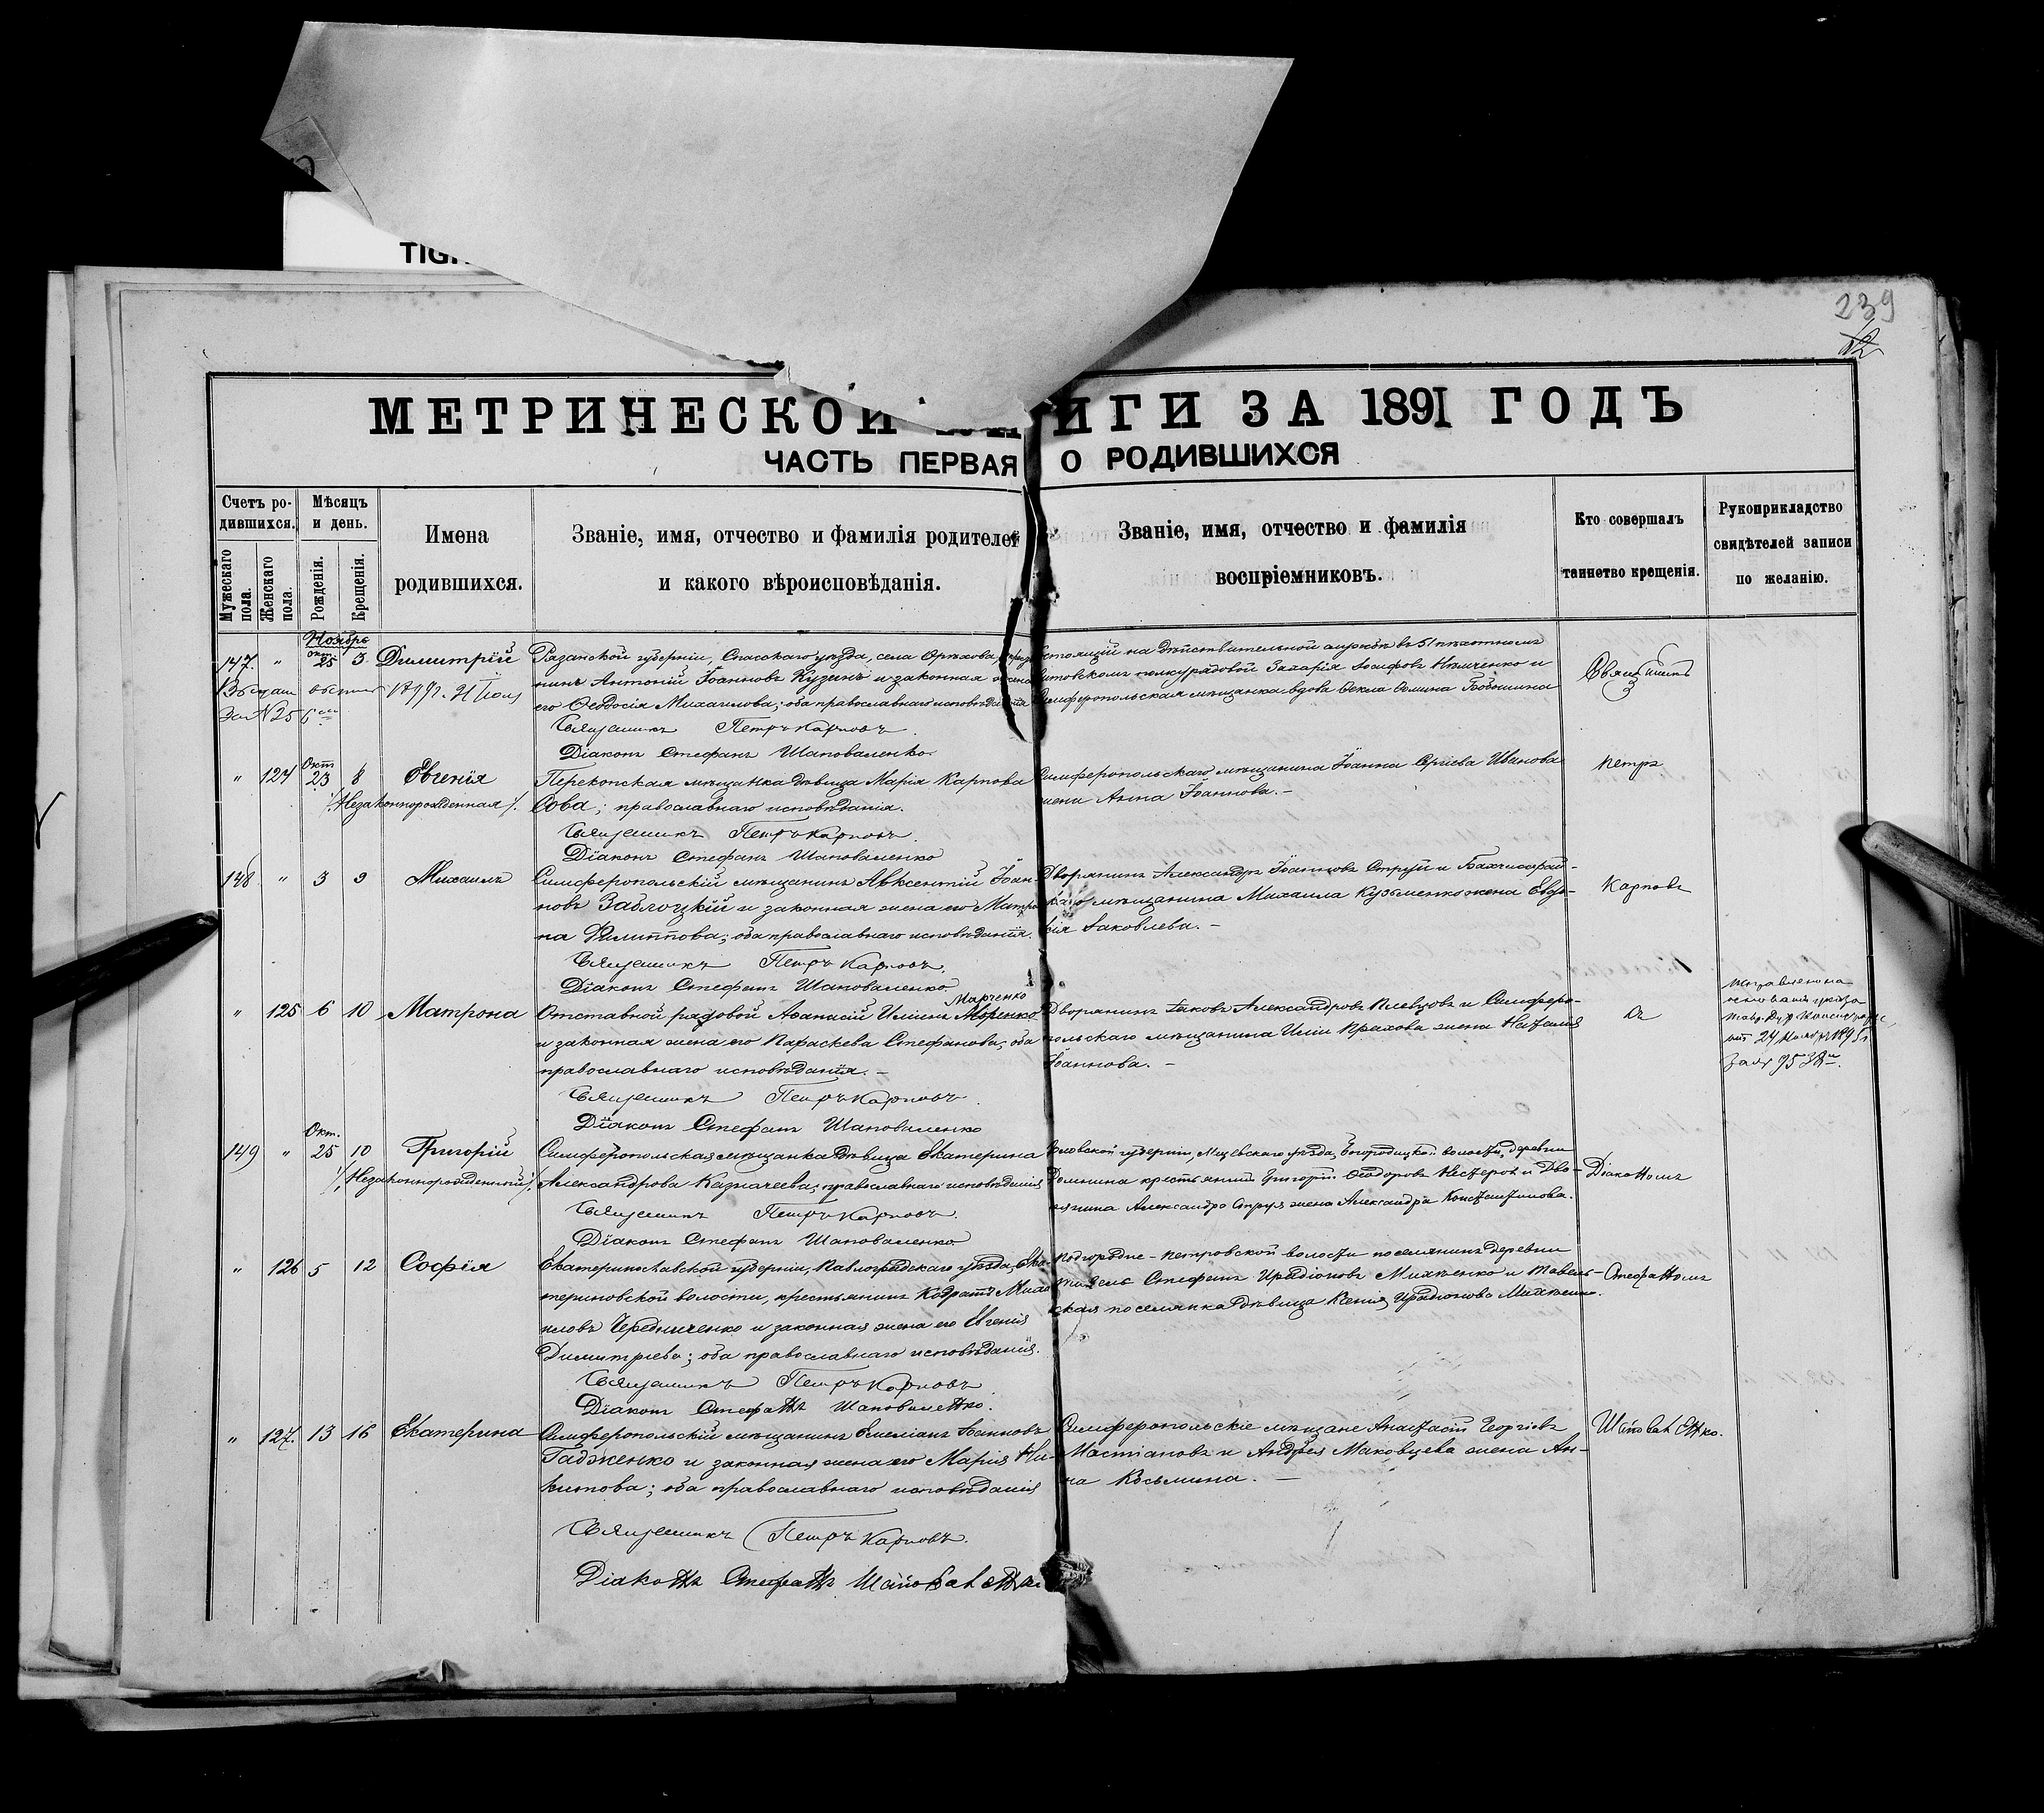 239
TIG
МЕТРИЧЕСКОЙ КНИГИ ЗА 1891 ГОДЪ
ЧАСТЬ ПЕРВАЯ О РОДИВШИХСЯ
Счетъ ро-
дившихся.
Мужескаго пола.
Женскаго пола.
Мѣсяцъ
и день.
Рожденія.
Крещенія.
Имена
родившихся.
Званіе, имя, отчество и фамилія родителей
и какого вѣроисповѣданія.
Званіе, имя, отчество и фамилія
воспріемниковъ.
Кто совершалъ
таинство крещенія.
Рукоприкладство
свидѣтелей записи
по желанію.
Ноябрь
147. " окт. 25 3 Димитрій
Рязанской губерніи, Спасскаго уѣзда, села Орѣхова,
нинъ Антоній Іоанновъ Кузинъ и законная жена
его Ѳеодосія Михаилова; оба православнаго исповѣданія
Священникъ Петръ Карповъ.
Діаконъ Стефанъ Шаповаленко.
состоящій на дѣйствительной службѣ въ 51 пѣхотномъ
Литовскомъ полку рядовой Захарія Іосифовъ Нѣмченко и
Симферопольская мѣщанка вдова Ѳекла Ѳомина Бабошина
Священникъ
" 124 Окт 23 8 Евгенія
/Незаконнорожденная/.
Перекопская мѣщанка дѣвица Марія Карпова
Сова; православнаго исповѣданія.
Священникъ Петръ Карповъ.
Діаконъ Стефанъ Шаповаленко
Симферопольскаго мѣщанина Іоанна Сергіева Иванова
жена Анна Іоаннова. –
Петръ
148. " 3 9 Михаилъ
Симферопольскій мѣщанинъ Авксентій Іоан-
новъ Заблоцкій и законная жена его Матро
на Филиппова; оба православнаго исповѣданія.
Священникъ Петръ Карповъ.
Діаконъ Стефанъ Шаповаленко
Дворянинъ Александръ Іоанновъ Струй и Бахчисарай-
скаго мѣщанина Михаила Кузьменко жена Евдо-
кія Іаковлева. –
Карповъ
" 125 6 10 Матрона
Марченко
Отставной рядовой Аѳанасій Иліинъ Маренко
и законная жена его Параскева Стефанова; оба
православнаго исповѣданія. –
Священникъ Петръ Карповъ.
Діаконъ Стефанъ Шаповаленко
Дворянинъ Іаковъ Александровъ Плевцовъ и Симферо-
польскаго мѣщанина Иліи Прахова жена Наталія
Іоаннова. –
съ
149 " Окт. 25 10 Григорій
/Незаконнорожденный/.
Симферопольская мѣщанка дѣвица Екатерина
Александрова Казначеева; православнаго исповѣданія
Священникъ Петръ Карповъ.
Діаконъ Стефанъ Шаповаленко
Орловской губерніи, Мценскаго уѣзда, Богородицкой волости, деревни
Домнина крестьянинъ Григорій Ѳеодоровъ Нестеровъ и Дво-
рянина Александра Струя жена Александра Константинова.
Діакономъ
" 126 5 12 Софія
Екатеринославской губерніи, Павлоградскаго уѣзда, Ека
териновской волости, крестьянинъ Кодратъ Миха
иловъ Чередниченко и законная жена его Евгенія
Димитріева; оба православнаго исповѣданія.
Священникъ Петръ Карповъ
Діаконъ Стефанъ Шаповаленко.
Подгородне-Петровской волости поселянинъ деревни
Стефанъ Иродіоновъ Михненко и Тавель-
ская поселянка дѣвица Ксенія Иродіонова Михненко.
Стефаномъ
" 127. 13 16 Екатерина
Симферопольскій мѣщанинъ Емеліанъ Іоанновъ
Гадженко и законная жена его Марія Ни-
китова; оба православнаго исповѣданія
Священникъ Петръ Карповъ.
Діаконъ Стефанъ Шаповаленко
Симферопольскіе мѣщане Анастасій Георгіевъ
Мастіановъ и Андрея Маковцева жена Ан-
на Козьмина. –
Шаповаленко.